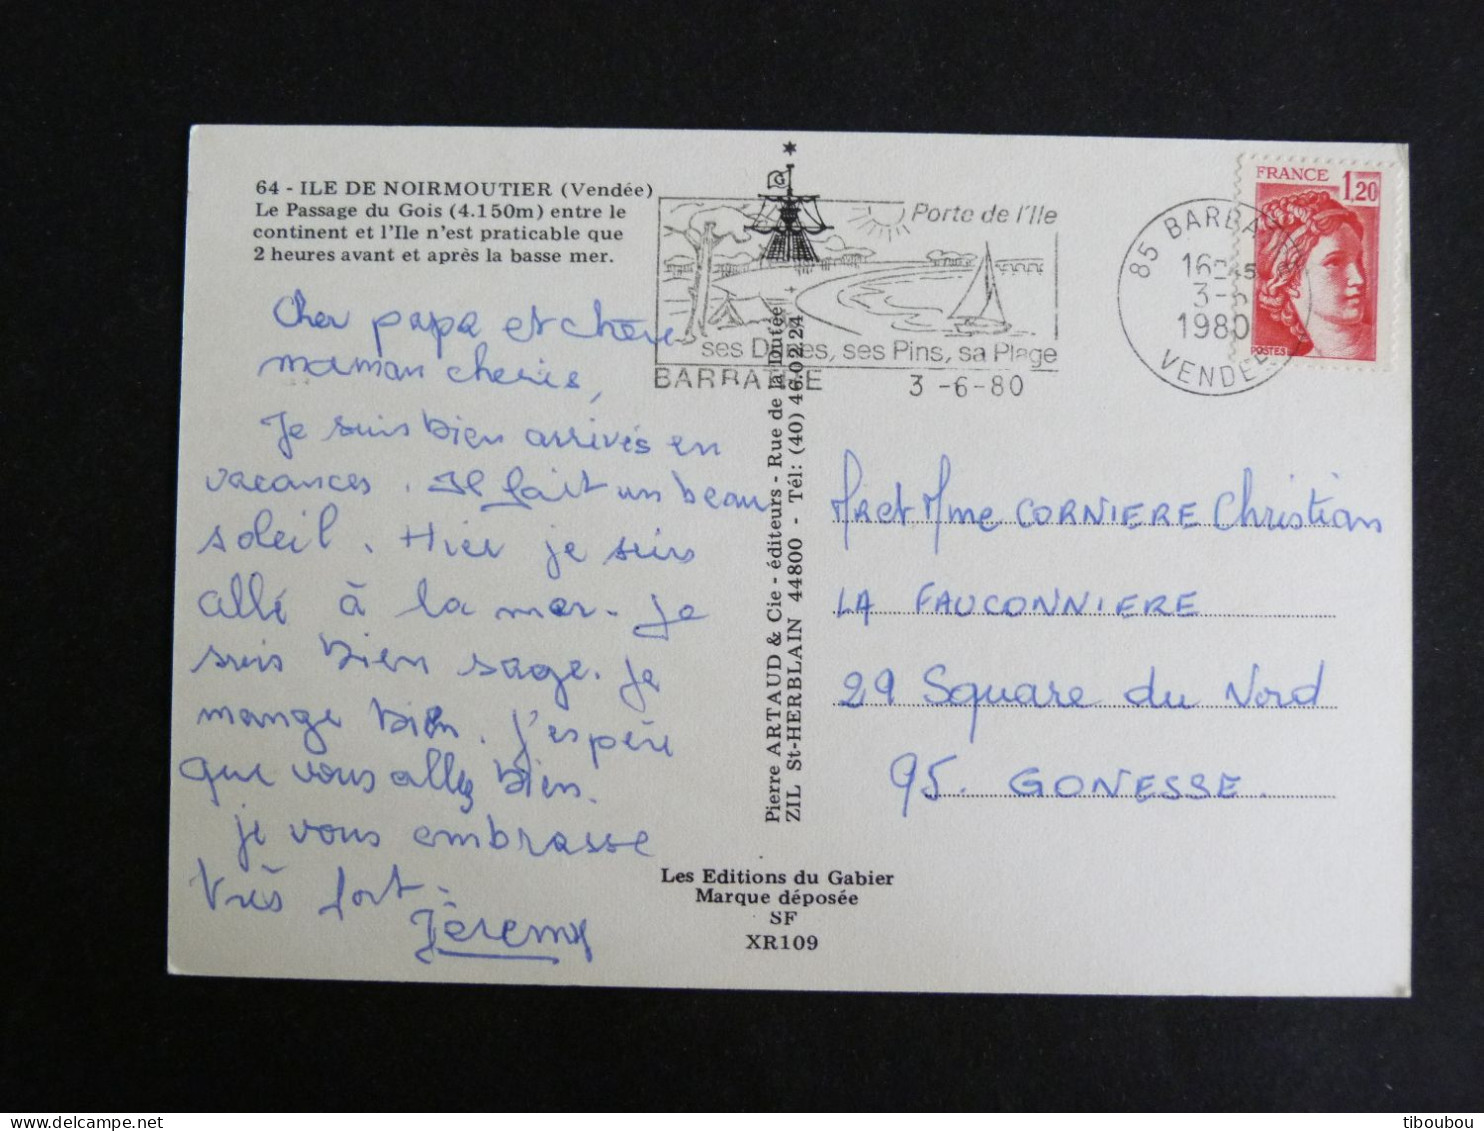 64 - ILE DE NOIRMOUTIER (Vendée)
Le Passage du Gois (4.150m) entre le
continent et l'Ile n'est praticable que
2 heures avant et après la basse mer.
Cher papa et chère
maman cheris,
Je suis bien arrivés en
vacances. Il fait un beau
soleil. Hier je suis
allé à la mer. Je
suis bien sage. Je
mange bien. J'espère
que vous allez bien.
je vous embrasse
très fort.
Jèremy
Porte de l'Ile
ses Dunes, ses Pins, sa Plage
BARBATRE 3 -6-80
85 BARBATRE
16-45
3-6
1980
VENDEE
FRANCE 1,20
POSTES
Pierre ARTAUD & Cie - éditeurs - Rue de la Dutée
ZIL St-HERBLAIN 44800 - Tél: (40) 46.02.24
Mr et Mme CORNIERE Christian
LA FAUCONNIERE
29 Square du Nord
95. GONESSE.
Les Editions du Gabier
Marque déposée
SF
XR109
tiboubou
delcampe.net